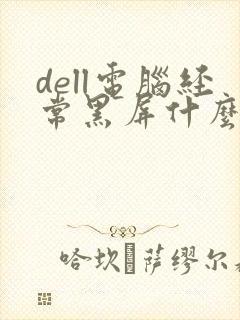 dell電腦經
常黑屏什麼
哈坎·萨缪尔